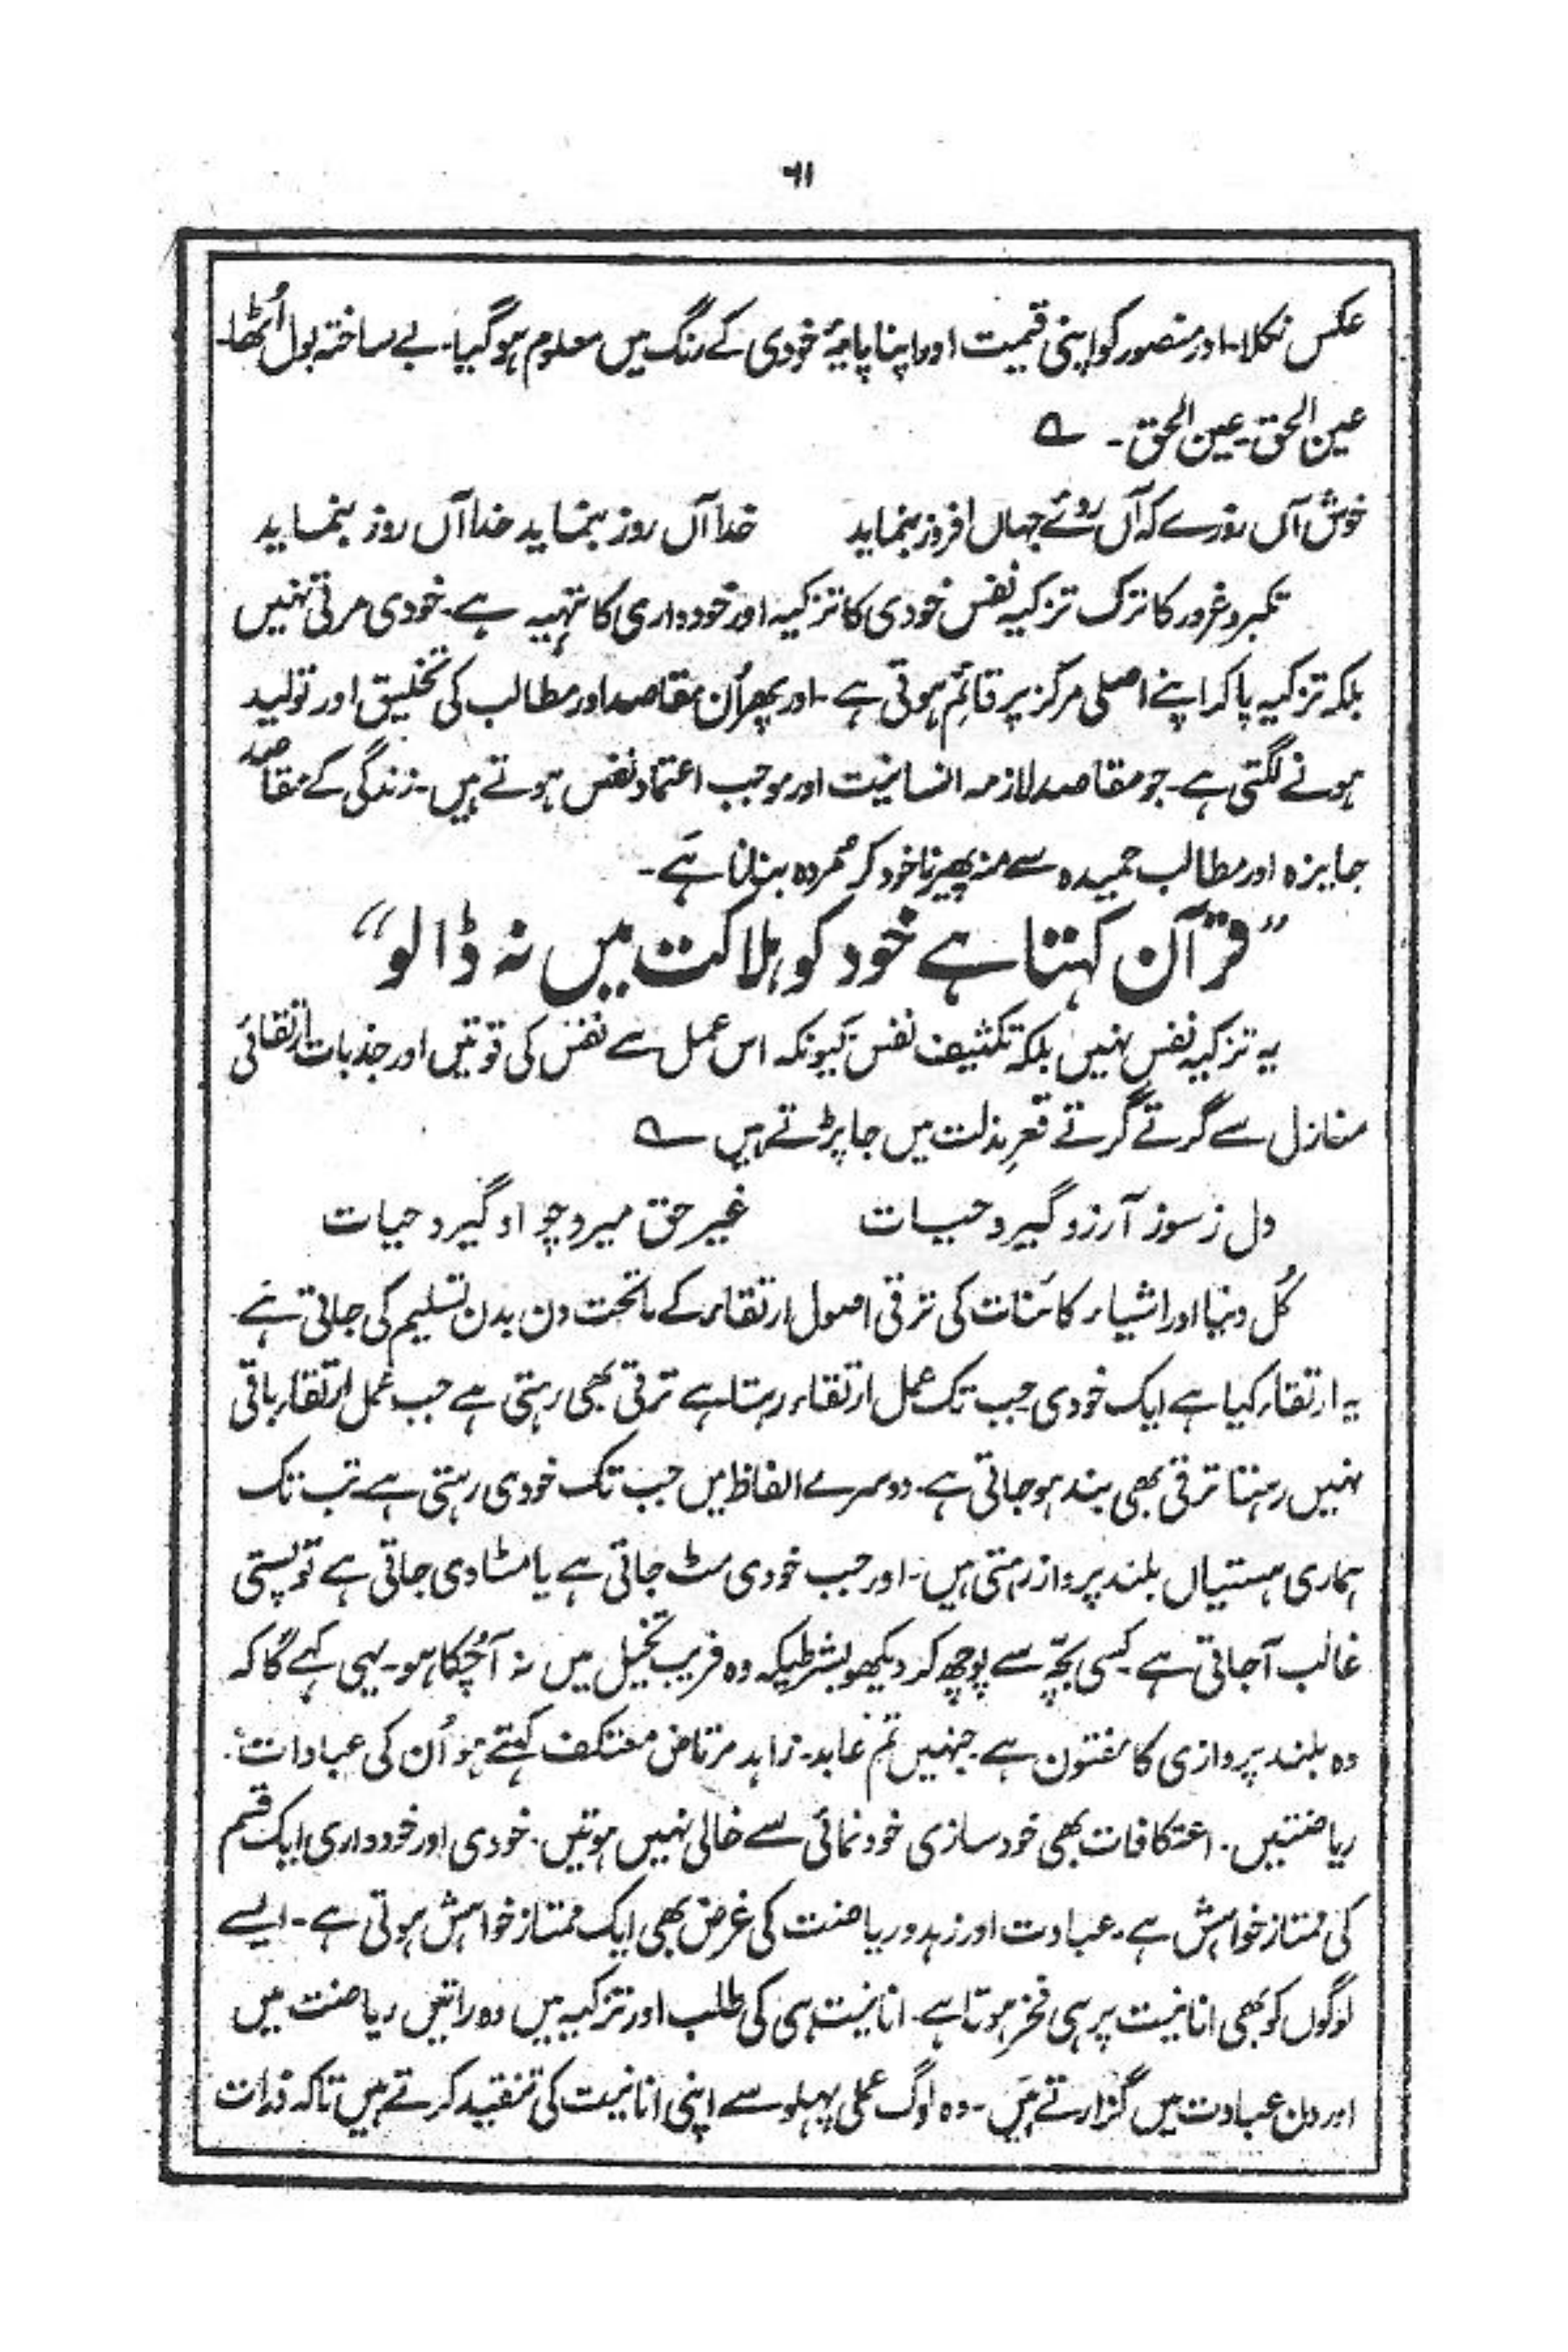 ۶۱
عکس نکلا۔ اور منصور کو اپنی قیمت اور اپنا پایۂ خودی کے رنگ میں معلوم ہوگیا۔ بے ساختہ بول اُٹھا۔
عین الحق۔ عین الحق۔ ؎
خوش آں روزے کہ آں روئے جہاں افروز بنماید خدا آں روز بنماید خدا آں روز بنماید
تکبر و غرور کا ترک تزکیہ نفس خودی کا تزکیہ اور خودداری کا تہیہ ہے۔ خودی مرتی نہیں
بلکہ تزکیہ پاکر اپنے اصلی مرکز پر قائم ہوتی ہے۔ اور پھر اُن مقاصد اور مطالب کی تخلیق اور تولید
ہونے لگتی ہے۔ جو مقاصد لازمہ انسانیت اور موجب اعتماد نفس ہوتے ہیں۔ زندگی کے مقاصد
جایزہ اور مطالب حمیدہ سے منہ پھیرنا خود کو مردہ بنانا ہے۔
”قرآن کہتا ہے خود کو ہلاکت میں نہ ڈالو“
یہ تزکیہ نفس نہیں بلکہ تکثیف نفس کیونکہ اس عمل سے نفس کی قوتیں اور جذبات ارتقائی
منازل سے گرتے گرتے قعرِ مذلت میں جا پڑتے ہیں ؎
دل ز سوز آرزو گیرد حیات غیر حق میرد چو او گیرد حیات
کُل دنیا اور اشیاء کائنات کی ترقی اصول ارتقاء کے ماتحت دن بدن تسلیم کی جاتی ہے۔
یہ ارتقاء کیا ہے ایک خودی جب تک عمل ارتقاء رہتا ہے ترقی بھی رہتی ہے جب عمل ارتقاء باقی
نہیں رہتا ترقی بھی بند ہو جاتی ہے۔ دوسرے الفاظ میں جب تک خودی رہتی ہے۔ تب تک
ہماری ہستیاں بلند پرواز رہتی ہیں۔ اور جب خودی مٹ جاتی ہے یا مٹا دی جاتی ہے تو پستی
غالب آجاتی ہے۔ کسی بچّے سے پوچھ کر دیکھو بشرطیکہ وہ فریب تخیل میں نہ آ چُکا ہو۔ یہی کہے گا کہ
وہ بلند پروازی کا مفتون ہے۔ جنہیں تم عابد۔ زاہد مرتاض معتکف کہتے ہو اُن کی عبادات۔
ریاضتیں۔ اعتکافات بھی خود سازی خود نمائی سے خالی نہیں ہوتیں۔ خودی اور خودداری ایک قسم
کی ممتاز خواہش ہے۔ عبادت اور زہد و ریاضت کی غرض بھی ایک ممتاز خواہش ہوتی ہے۔ ایسے
لوگوں کو بھی انانیت پر ہی فخر ہوتا ہے۔ انانیت ہی کی طلب اور تزکیہ میں وہ راتیں ریاضت میں
اور دن عبادت میں گزارتے ہیں۔ وہ لوگ عملی پہلو سے اپنی انانیت کی تنقید کرتے ہیں تاکہ ذرات